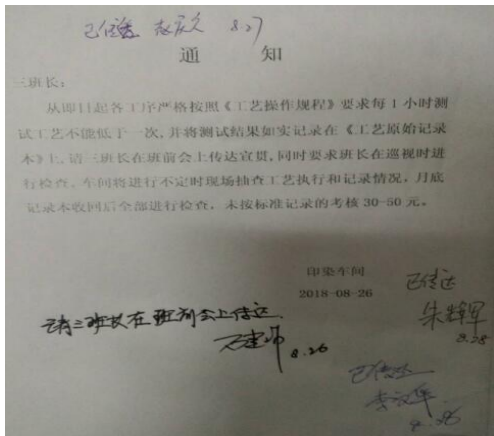 已传达 8.27
通 知
三班长：
从即日起各工序严格按照《工艺操作规程》要求每1小时测
试工艺不能低于一次，并将测试结果如实记录在《工艺原始记录
本》上，请三班长在班前会上传达宣贯，同时要求班长在巡视时进
行检查。车间将进行不定时现场抽查工艺执行和记录情况，月底
记录本收回后全部进行检查，未按标准记录的考核30-50元。
印染车间
2018-08-26
已传达
朱辉军
8.28
请三班长在班前会上传达
8.26
已传达
8.26